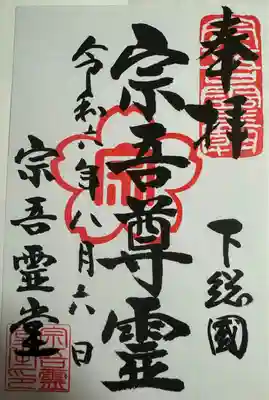 奉拝
下総國
宗吾尊霊
令和六年八月六日
宗吾霊堂